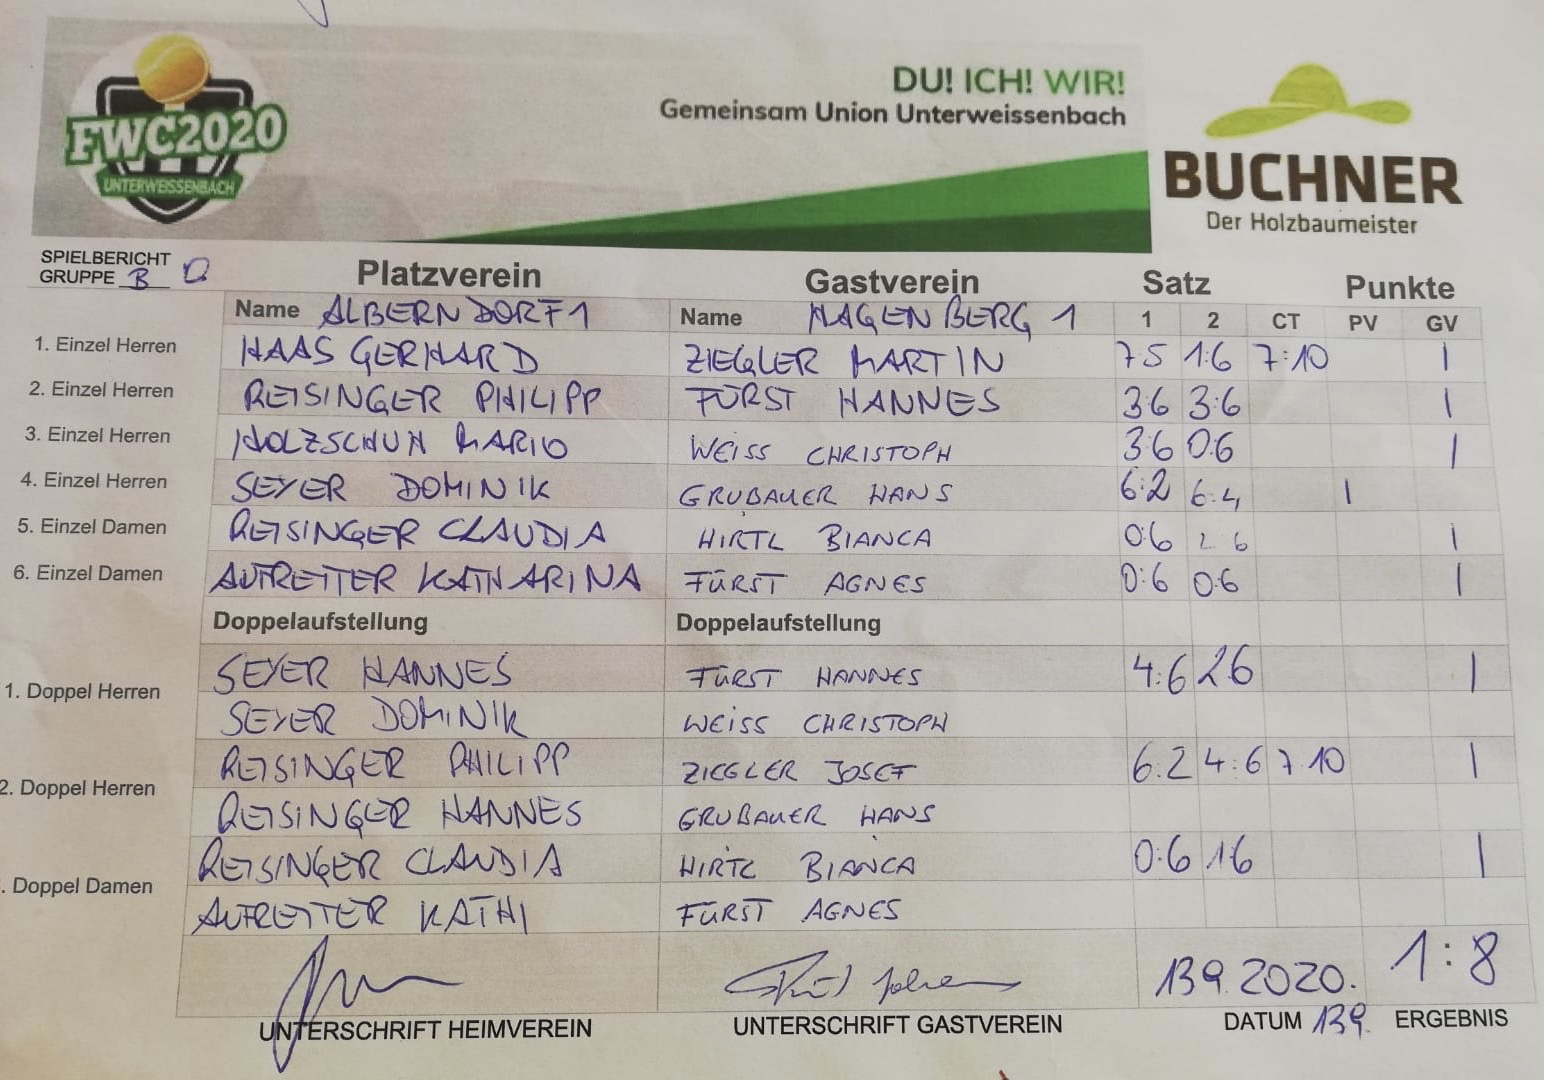 FWC2020
UNTERWEISSENBACH
DU! ICH! WIR!
Gemeinsam Union Unterweissenbach
BUCHNER
Der Holzbaumeister
SPIELBERICHT
GRUPPE B D
Platzverein Gastverein Satz Punkte
Name ALBERNDORF 1 Name HAGENBERG 1 1 2 CT PV GV
1. Einzel Herren HAAS GERHARD ZIEGLER MARTIN 7 5 1:6 7:10 1
2. Einzel Herren REISINGER PHILIPP FÜRST HANNES 3:6 3:6 1
3. Einzel Herren HOLZSCHUH MARIO WEISS CHRISTOPH 3:6 0:6 1
4. Einzel Herren SEYER DOMINIK GRUBAUER HANS 6:2 6:4 1
5. Einzel Damen REISINGER CLAUDIA HIRTL BIANCA 0:6 2 6 1
6. Einzel Damen AUFREITER KATHARINA FÜRST AGNES 0:6 0:6 1
Doppelaufstellung Doppelaufstellung
SEYER HANNES FÜRST HANNES 4:6 2 6 1
1. Doppel Herren
SEYER DOMINIK WEISS CHRISTOPH
REISINGER PHILIPP ZIEGLER JOSEF 6:2 4:6 7:10 1
2. Doppel Herren
REISINGER HANNES GRUBAUER HANS
REISINGER CLAUDIA HIRTL BIANCA 0:6 1 6 1
. Doppel Damen
AUFREITER KATHI FÜRST AGNES
13 9. 2020. 1:8
UNTERSCHRIFT HEIMVEREIN UNTERSCHRIFT GASTVEREIN DATUM 13 9. ERGEBNIS